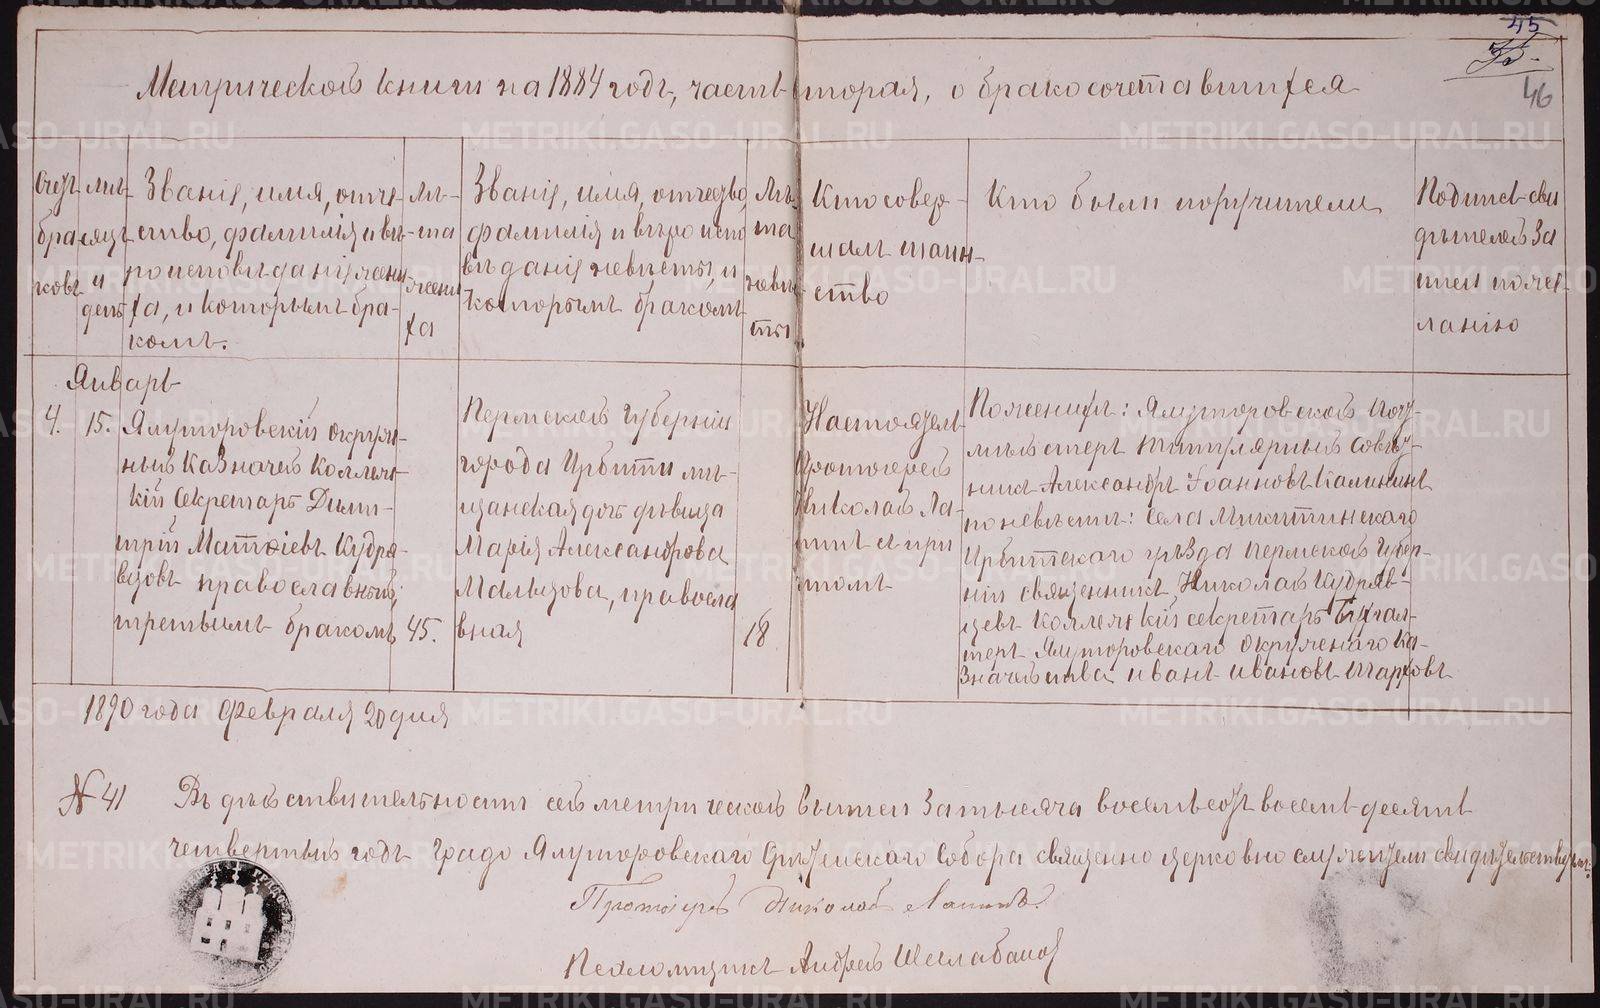 45
46
Метрической книги на 1884 годъ, часть вторая, о бракосочетавшихся
Счетъ браковъ
Мѣсяцъ и день
Званіе, имя, отче-
ство, фамилія и вѣ-
роисповѣданіе жени-
ха, и которымъ бра-
комъ.
Лѣ-
та
жени
ха
Званіе, имя, отчество,
фамилія и вѣроиспо
вѣданіе невѣсты, и
которымъ бракомъ
Лѣ-
та
невѣ-
сты
Кто совер-
шалъ таин-
ство
Кто были поручители
Подпись сви
дѣтелей за
писи по же-
ланію
Январь
4.
15.
Ялуторовскій окруж-
ный Казначей Коллеж-
кій Секретарь Дими-
трій Матѳіевъ Кудря-
вцовъ православный,
третьимъ бракомъ
45.
Пермской Губерніи
города Ирбити мѣ-
щанская дочь дѣвица
Марія Александрова
Мальцова, правосла
вная
18
Настоятель
Протоіерей
Николай Ла-
пинъ съ при
томъ
По женихѣ: Ялуторовской Почт-
мейстеръ Титулярный Совѣт-
никъ Александръ Іоанновъ Калининъ
по невѣстѣ: села Микитинскаго
Ирбитскаго уѣзда Пермской Губер-
ніи священникъ Николай Кудряв-
цевъ Коллежкій секретарь Бухгал-
теръ Ялуторовскаго Окружнаго Ка-
значейства Иванъ Ивановъ Шарховъ
1890 года Февраля 20 дня
№ 41 Въ дѣйствительности сей метрической выписи за тысяча восемьсотъ восемьдесятъ
четвертый годъ Градо Ялуторовскаго Срѣтенскаго Собора священно церковно служители свидѣтельствуютъ.
Протоіерей Николай Лапинъ.
Псаломщикъ Андрей
METRIKI.GASO-URAL.RU